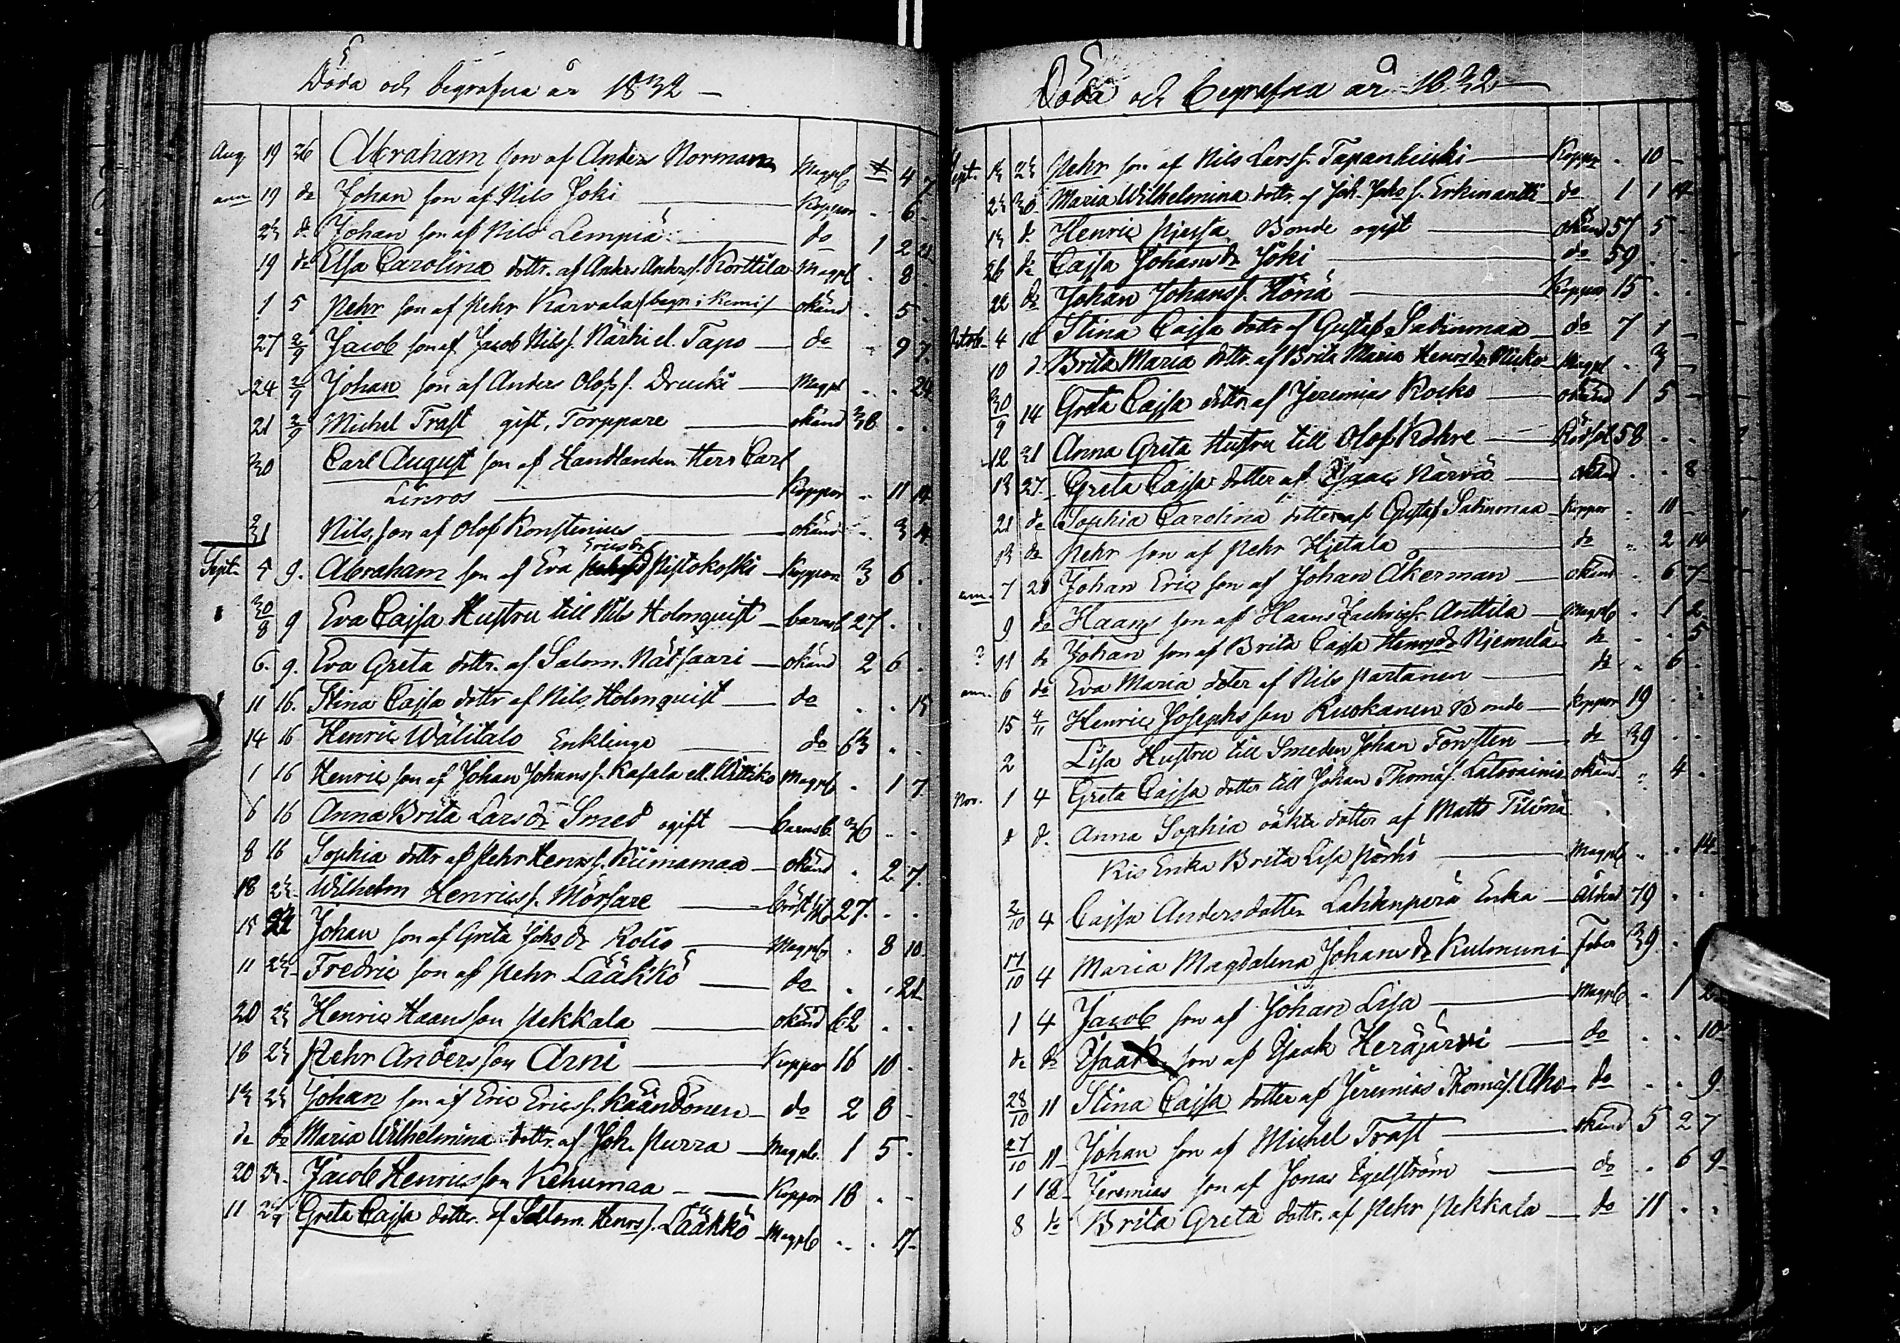 Döda och begrafna år 1832 —
Aug. 19 26 Abraham son af Anders Norman Magpl 4 7
anm 19 do Johan son af Nils Joki Koppor . 6 .
23 do Johan son af Nils Lempiä do 1 2 21
19 do Elsa Carolina dottr. af Anders Anderss. Korttila Magpl . 8 .
1 5 Pehr son af Pehr Karvala (begr. i Kemi) okänd . 5 .
27 2/9 Jacob son af Jacob Nilss. Närhi el. Tapo — do . 9 7.
24 2/9 Johan son af Anders Olofss. Drucki — Magpl . . 24
21 2/9 Michel Trast gift, Torppare — okänd 38 . .
30 Carl August son af Handlanden Herr Carl
Linros — Koppor . 11 14
31 Nils, son af Olof Konstenius — okänd . 3 14
Ericsdr
Sept. 5 9. Abraham son af Eva Pistokoski — Koppor 3 6 .
30/8 9 Eva Cajsa Hustru till Nils Holmquist — barnsb 27 . .
6. 9. Eva Greta dottr. af Salom. Nätsaari — okänd 2 6 .
11 16. Stina Cajsa dottr af Nils Holmquist — do . . 15
14 16 Henric Wälitalo Enklinge — do 63 . .
1 16 Henric son af Johan Johanss. Kasala ell. Wittiko Magpl . 1 7
6 16 Anna Brita Larsdr Smed ogift — barnsb. 36 . .
8 16 Sophia dottr af Pehr Henrss. Kiimamaa — okänd . 2 7.
18 23 Wilhelm Henricss. Mörsare — 27. . .
15 Johan son af Greta Johsdr Kolio — Magpl . 8 10
11 23 Fredric son af Pehr Läähkö — do . . 21
20 23 Henric Haansson Pekkala — okänd 62 . .
18 23 Pehr Andersson Arni — Koppor 16 10 .
13 23 Johan son af Eric Ericss. Käändönen — do 2 8 -
do do Maria Wilhelmina dottr. af Joh. Purra — Magpl. 1 5 -
20 23. Jacob Henricsson Kehumaa — Koppor 18 . -
11 Greta Cajsa dottr. af Salom. Henrss. Läähkö — Magpl . . 17.
Döda och Begrafna år 1832 —
Sept. 13 23 Pehr son af Nils Larss. Tapanlinski — Koppor . 10 -
23 30 Maria Wilhelmina dottr. af Joh. Johs s. Erkinantti — do 1 1 14
13 do Henric Pjessa Bonde ogift — okänd 57 5 .
26 do Cajsa Johansdr Joki — do 59 . .
22 do Johan Johanss. Könä — Koppor 15 . .
Octob. 4 Stina Cajsa dottr af Gustaf Satinmaa — do 7 1 -
10 d. Brita Maria dottr. af Brita Maria Henrsdr — Magpl . 3 -
30/9 14 Greta Cajsa dottr. af Jeremias Rocko — okänd 1 5 -
12 21 Anna Greta Hustru till Olof Köhre — Rödsot 58 . .
13 27. Greta Cajsa dotter af Isaac Närvä — okänd . . 8
21 do Sophia Carolina dotter af Gustaf Satinmaa — Koppor . 11 -
13 do Pehr son af Pehr Hjetala — do . 2 14
anm. 7 28 Johan Eric son af Johan Åkerman — okänd . 6 7
9 do Haans son af Haans Zachriss. Anttila — Magpl . 1 2
? 11 do Johan son af Brita Cajsa Henrsdr Njemelä do . . 5
anm. 6 do Eva Maria doter af Nils Partanen — do . 6 .
15 4/11 Henric Josephsson Ruokanen Bonde — Koppor 19 . .
2 Lisa Hustru till Smeden Johan Forsten — do 39 . .
Nov. 1 4 Greta Cajsa dotter till Johan Thomass. Latvainio okänd . 4 .
d d. Anna Sophia oäkta dotter af Matts
Enka Brita Lisa Pörhö — Magpl . . 14
2/10 4 Cajsa Andersdotter Lahhenperä Enka — ålderd 79 . .
17/10 4 Maria Magdalena Johansdr Kulmuni feber 39 . .
1 4 Jacob son af Johan Lisa — Magpl . 1 2
do do Isaak son af Isaak Heräjärvi — do . . 10
28/10 11 Stina Cajsa dotter af Jeremias Thomass. Aho — do . . 9
27/10 11 Johan son af Michel Trast — okänd 5 2 7
1 18 Jeremias son af Jonas Egelström — do . 6 9
8 do Brita Greta dottr. af Pehr Pekkala — do 11 . .